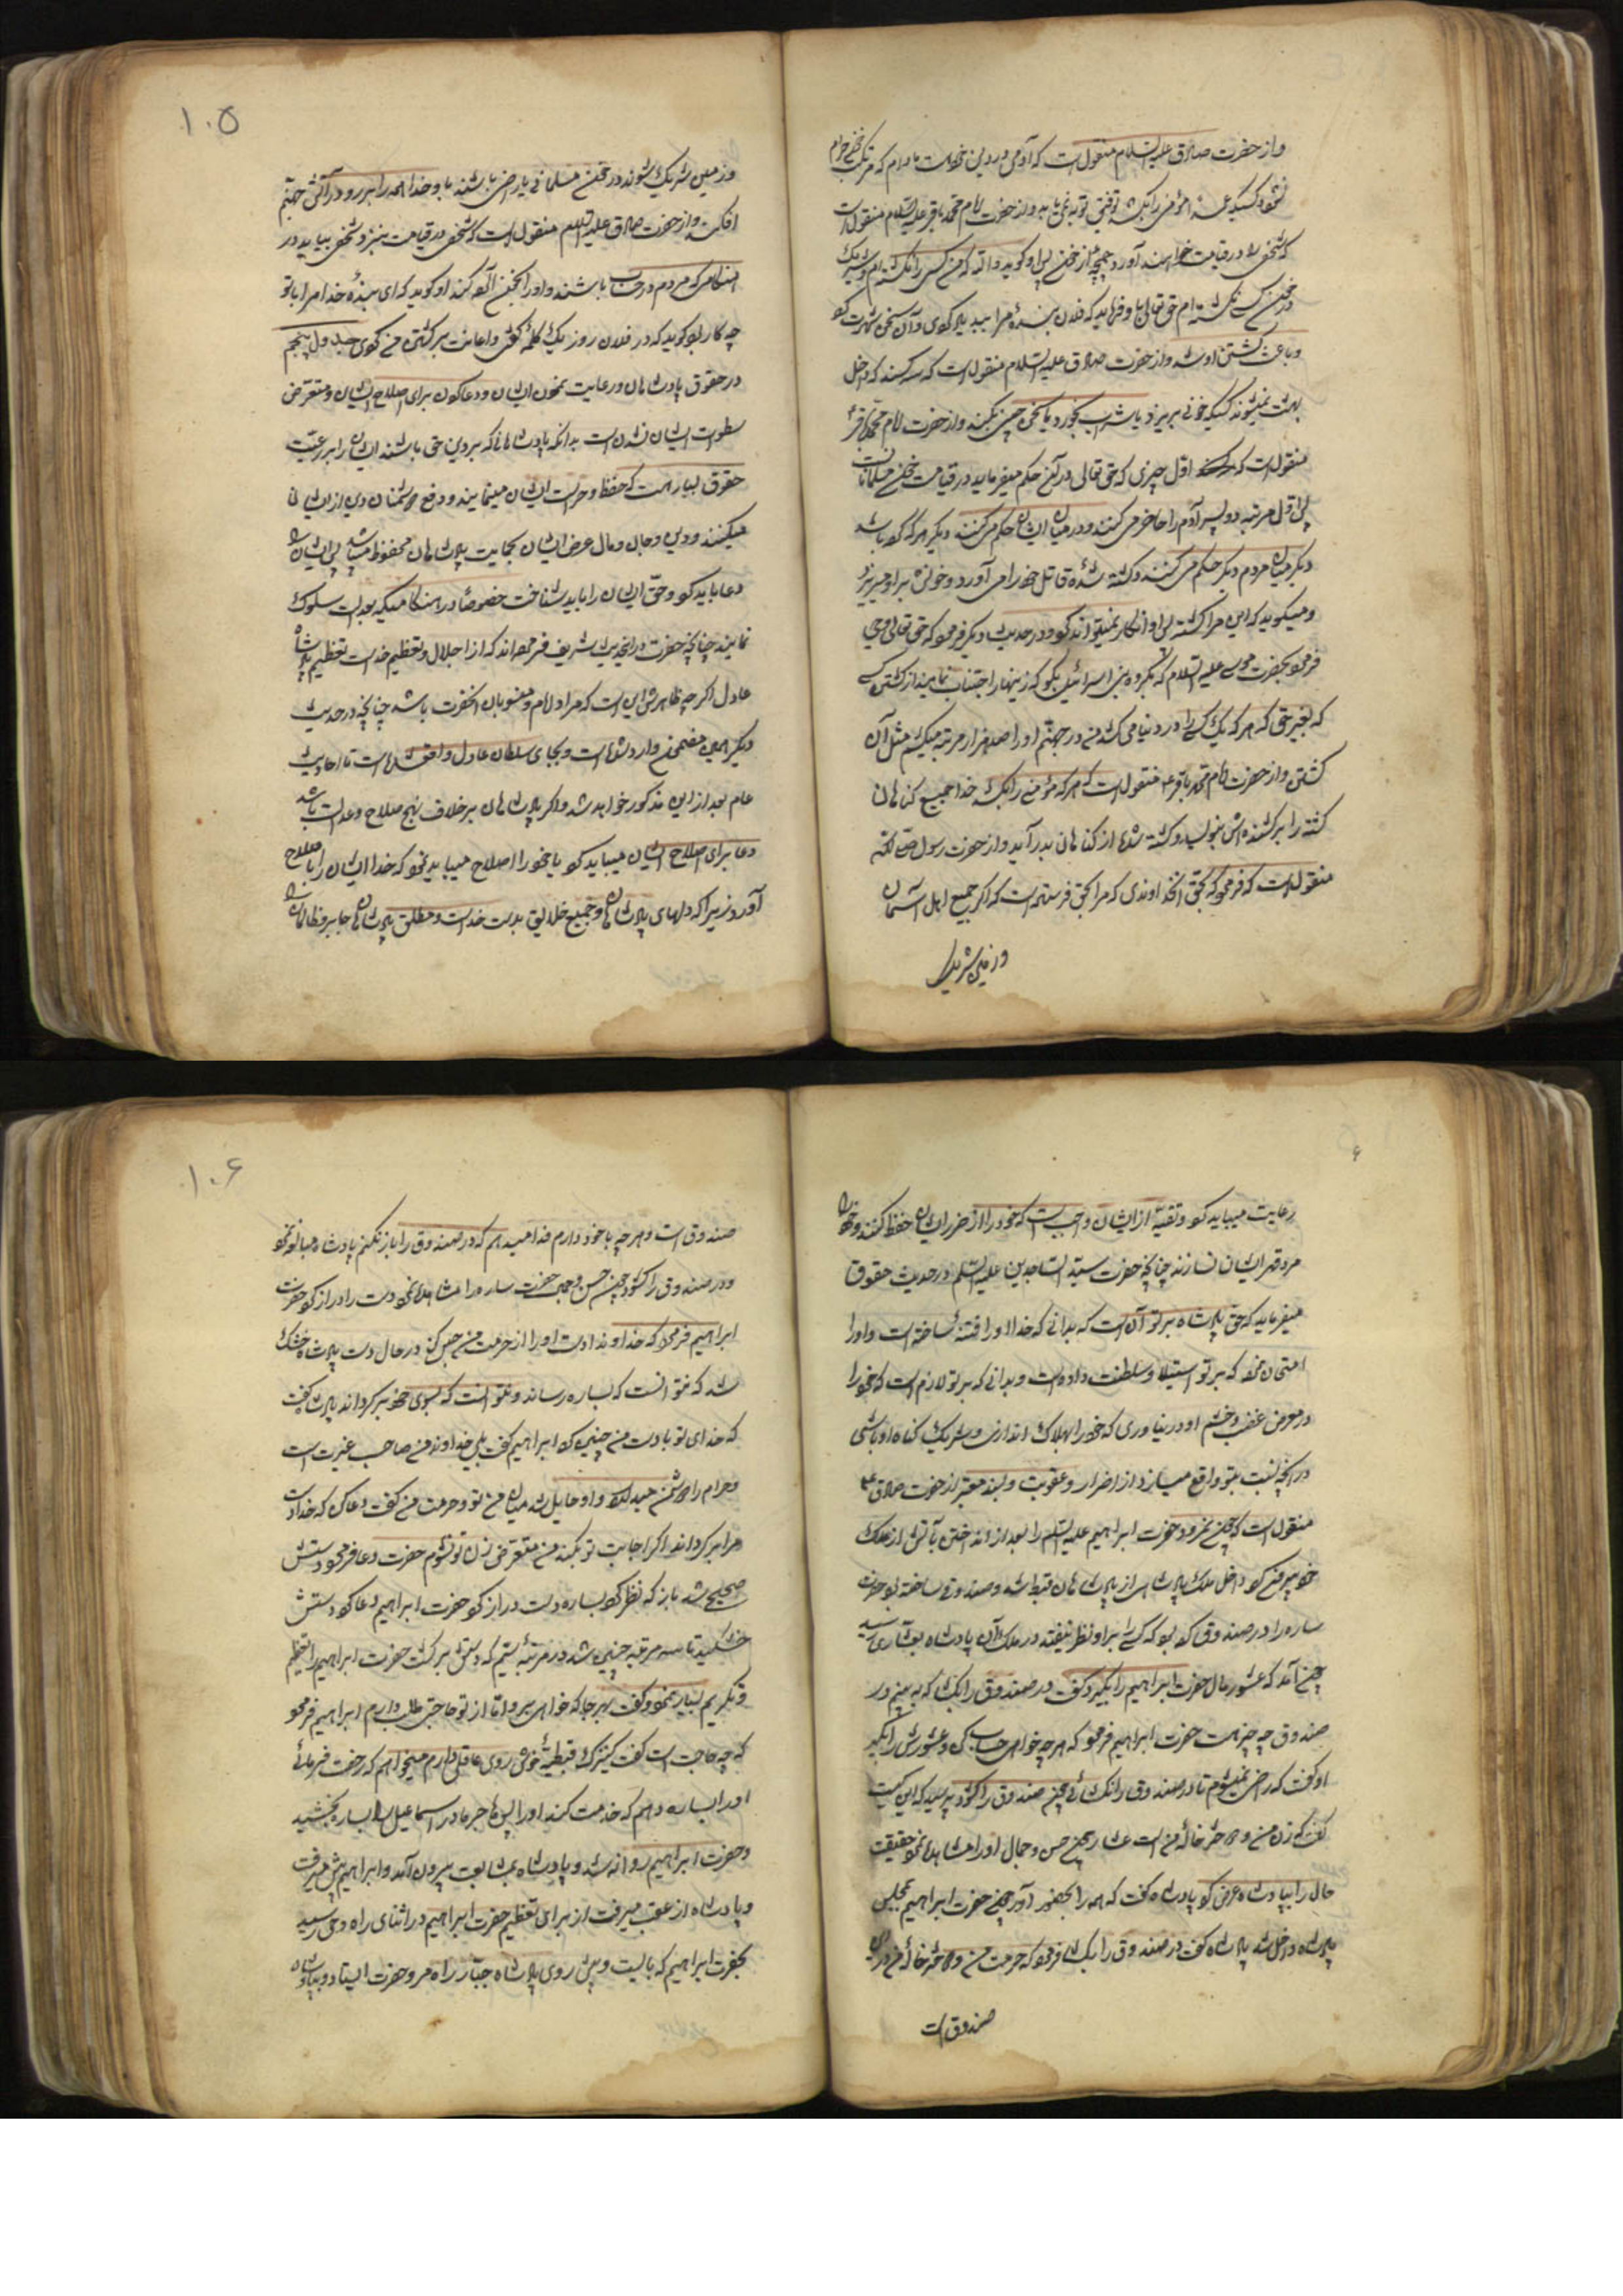 واز حضرت صادق علیه السلام منقول است که آدمی در دین خودست مادام که مرتکب خونی حرام
نشود کسیکه عمدا مؤمنی را بکشد توفیق توبه نمی یابد واز حضرت امام محمد باقر علیه السلام منقول است
که شخص را در قیامت خواهند آورد از خون پس او گوید والله که من کسی را نکشته ام و شریک
در خون کسی نشده ام حق تعالی باو فرماید که فلان بنده مرا بیدی یاد کردی و آن سخن شهرت کرد
و باعث کشتن او شد واز حضرت صادق علیه السلام منقول است که سه کسند که داخل
بهشت نمیشوند کسیکه خونی بریزد یا شراب بخورد یا سخن چینی بکند واز حضرت امام محمد باقر ع
منقول است که اول چیزی که حق تعالی در آن حکم میفرماید در قیامت خون مسلمانان است
پس اول مرتبه دو پسر آدم را حاضر می کنند و در میان ایشان حکم می کنند دیگر هر که که باشد
دیگر میان مردم دیگر حکم می کنند و کشته شده قاتل خود را می آورد و خونش بر او میریزد
و میگوید که این مرا کشته پس او انکار نمیتواند کرد و در حدیث دیگر فرمود که حق تعالی وحی
فرمود بحضرت موسی علیه السلام که بگروه بنی اسرائیل بگو که زینهار اجتناب نمایند از کشتن کسی
که بغیر حق که هر که یک کس را در دنیا می کشد من در جهنم او را صد هزار مرتبه میکشم مثل آن
کشتن واز حضرت امام محمد باقر ع منقول است که هر که مؤمنی را بکشد خدا جمیع گناهان
کشته را بر کشنده اش بنویسد و کشته شده از گناهان بدر آید واز حضرت رسول صلی الله
منقول است که فرمود که بحق آنخداوندی که مرا بحق فرستاده است که اگر جمیع اهل آسمان
و زمین شریک
۱۰۵
و زمین شریک شوند در خون مسلمانی یا راضی باشند باو خدا همه را بر رو در آتش جهنم
افکند واز حضرت صادق علیه السلام منقول است که شخصی در قیامت بنزد شخصی بیاید در
هنگامی که مردم در حساب باشند و او را بخون آلوده کند او گوید که ای بنده خدا مرا با تو
چه کار بود گوید که در فلان روز یک کلمه گفتی و اعانت بر کشتن من کردی جدول پنجم
در حقوق پادشاهان و رعایت نمودن ایشان و دعا کردن برای اصلاح ایشان و متعرض
سطوات ایشان نشدن است بدانکه پادشاهانی که بر دین حق باشند ایشان را بر رعیت
حقوق بسیار هست که حفظ و حراست ایشان مینمایند و دفع دشمنان دین از ایشان
میکنند و دین و جان و مال و عرض ایشان بحمایت پادشاهان محفوظ میباشد پس ایشان را
دعا باید کرد و حق ایشان را باید شناخت خصوصا در هنگامیکه بعدالت سلوک
نمایند چنانچه حضرت در این حدیث شریف فرموده اند که از اجلال و تعظیم خداست تعظیم پادشاه
عادل اگرچه ظاهرش این است که مراد امام و منسوبان آنحضرت باشد چنانچه در حدیث
دیگر همین مضمون وارد شده است و بجای سلطان عادل واقع شده است تا احادیث
عام بعد از این مذکور خواهد شد و اگر پادشاهان بر خلاف نهج صلاح و عدالت باشند
دعا برای اصلاح ایشان میباید کرد یا خود را اصلاح میباید نمود که خدا ایشان را با صلاح
آورد زیرا که دلهای پادشاهان و جمیع خلایق بدست خداست و مطلق پادشاهان جابر و ظالمان را
رعایت میباید کرد و تقیه از ایشان واجب است که خود را از ضرر ایشان حفظ کنند و خود را
مورد قهر ایشان نسازند چنانچه حضرت سید الساجدین علیه السلام در حدیث حقوق
میفرماید که حق پادشاه بر تو آن است که بدانی که خدا او را فتنه ساخته است و او را
امتحان نموده که بر تو استیلا و سلطنت داده است و بدانی که بر تو لازم است که خود را
در معرض غضب و خشم او در نیاوری که خود را بهلاک اندازی و شریک گناه او باشی
در آنچه نسبت بتو واقع میسازد از اضرار و عقوبت و بسند معتبر از حضرت صادق ع
منقول است که چون نمرود حضرت ابراهیم علیه السلام را بعد از انداختن بآتش از ملک
خود بیرون کرد داخل ملک پادشاهی از پادشاهان قبط شد و صندوقی ساخته بود حضرت
ساره را در صندوق کرده بود که کسی را بر او نظر نیفتد در ملک آن پادشاه بعشاری رسید
چون آمد که عشور مال حضرت ابراهیم را بگیرد گفت در صندوق را بگشا که ببینم در
صندوق چه چیز هست حضرت ابراهیم فرمود که هر چه خواهی حساب کن و عشورش را بگیر
او گفت که راضی نمیشوم تا در صندوق را نگشائی چون صندوق را گشود پرسید که این کیست
گفت که زن من و دختر خاله من است عشار چون حسن و جمال او را مشاهده نمود حقیقت
حال را بپادشاه عرض کرد پادشاه گفت که همه را بحضور آور چون حضرت ابراهیم بمجلس
پادشاه داخل شد پادشاه گفت در صندوق را بگشا فرمود که حرمت من و دختر خاله من در این
صندوق است
۱۰۶
صندوق است و هر چه با خود دارم فدا میدهم که در صندوق را باز نکنم پادشاه مبالغه نمود
و در صندوق را گشود چون حسن و جمال حضرت ساره را مشاهده نمود دست را دراز کرد حضرت
ابراهیم فرمود که خداوندا دست او را از حرمت من حبس کن در حال دست پادشاه خشک
شد که نتوانست که بساره رساند و نتوانست که بسوی خود برگرداند پادشاه گفت
که خدای تو با دست من چنین کرد ابراهیم گفت بلی خداوند من صاحب غیرت است
و حرام را دشمن میدارد و او حایل شد میان من تو و حرمت من گفت دعا کن که خدا دست
مرا برگرداند اگر اجابت تو بکند من متعرض زن تو نشوم حضرت دعا فرمود دستش
صحیح شد باز که نظر کرد بساره دست دراز کرد حضرت ابراهیم دعا کرد دستش
خشکید تا سه مرتبه چنین شد در مرتبه سیم که دستش برگشت حضرت ابراهیم را تعظیم
و تکریم بسیار نمود و گفت بهر جا که خواهی برو اما از تو حاجتی طلب دارم ابراهیم فرمود
که چه حاجت است گفت کنیزک قبطیه خوش روی عاقلی دارم میخواهم که رخصت فرمائی
او را بساره دهم که خدمت کند او را پس هاجر مادر اسماعیل را بساره بخشید
و حضرت ابراهیم روانه شد و پادشاه بمشایعت بیرون آمد و ابراهیم پیش میرفت
و پادشاه از عقب میرفت از برای تعظیم حضرت ابراهیم در اثنای راه وحی رسید
بحضرت ابراهیم که بایست و پیش روی پادشاه جبار راه مرو حضرت ایستاد و بپادشاه